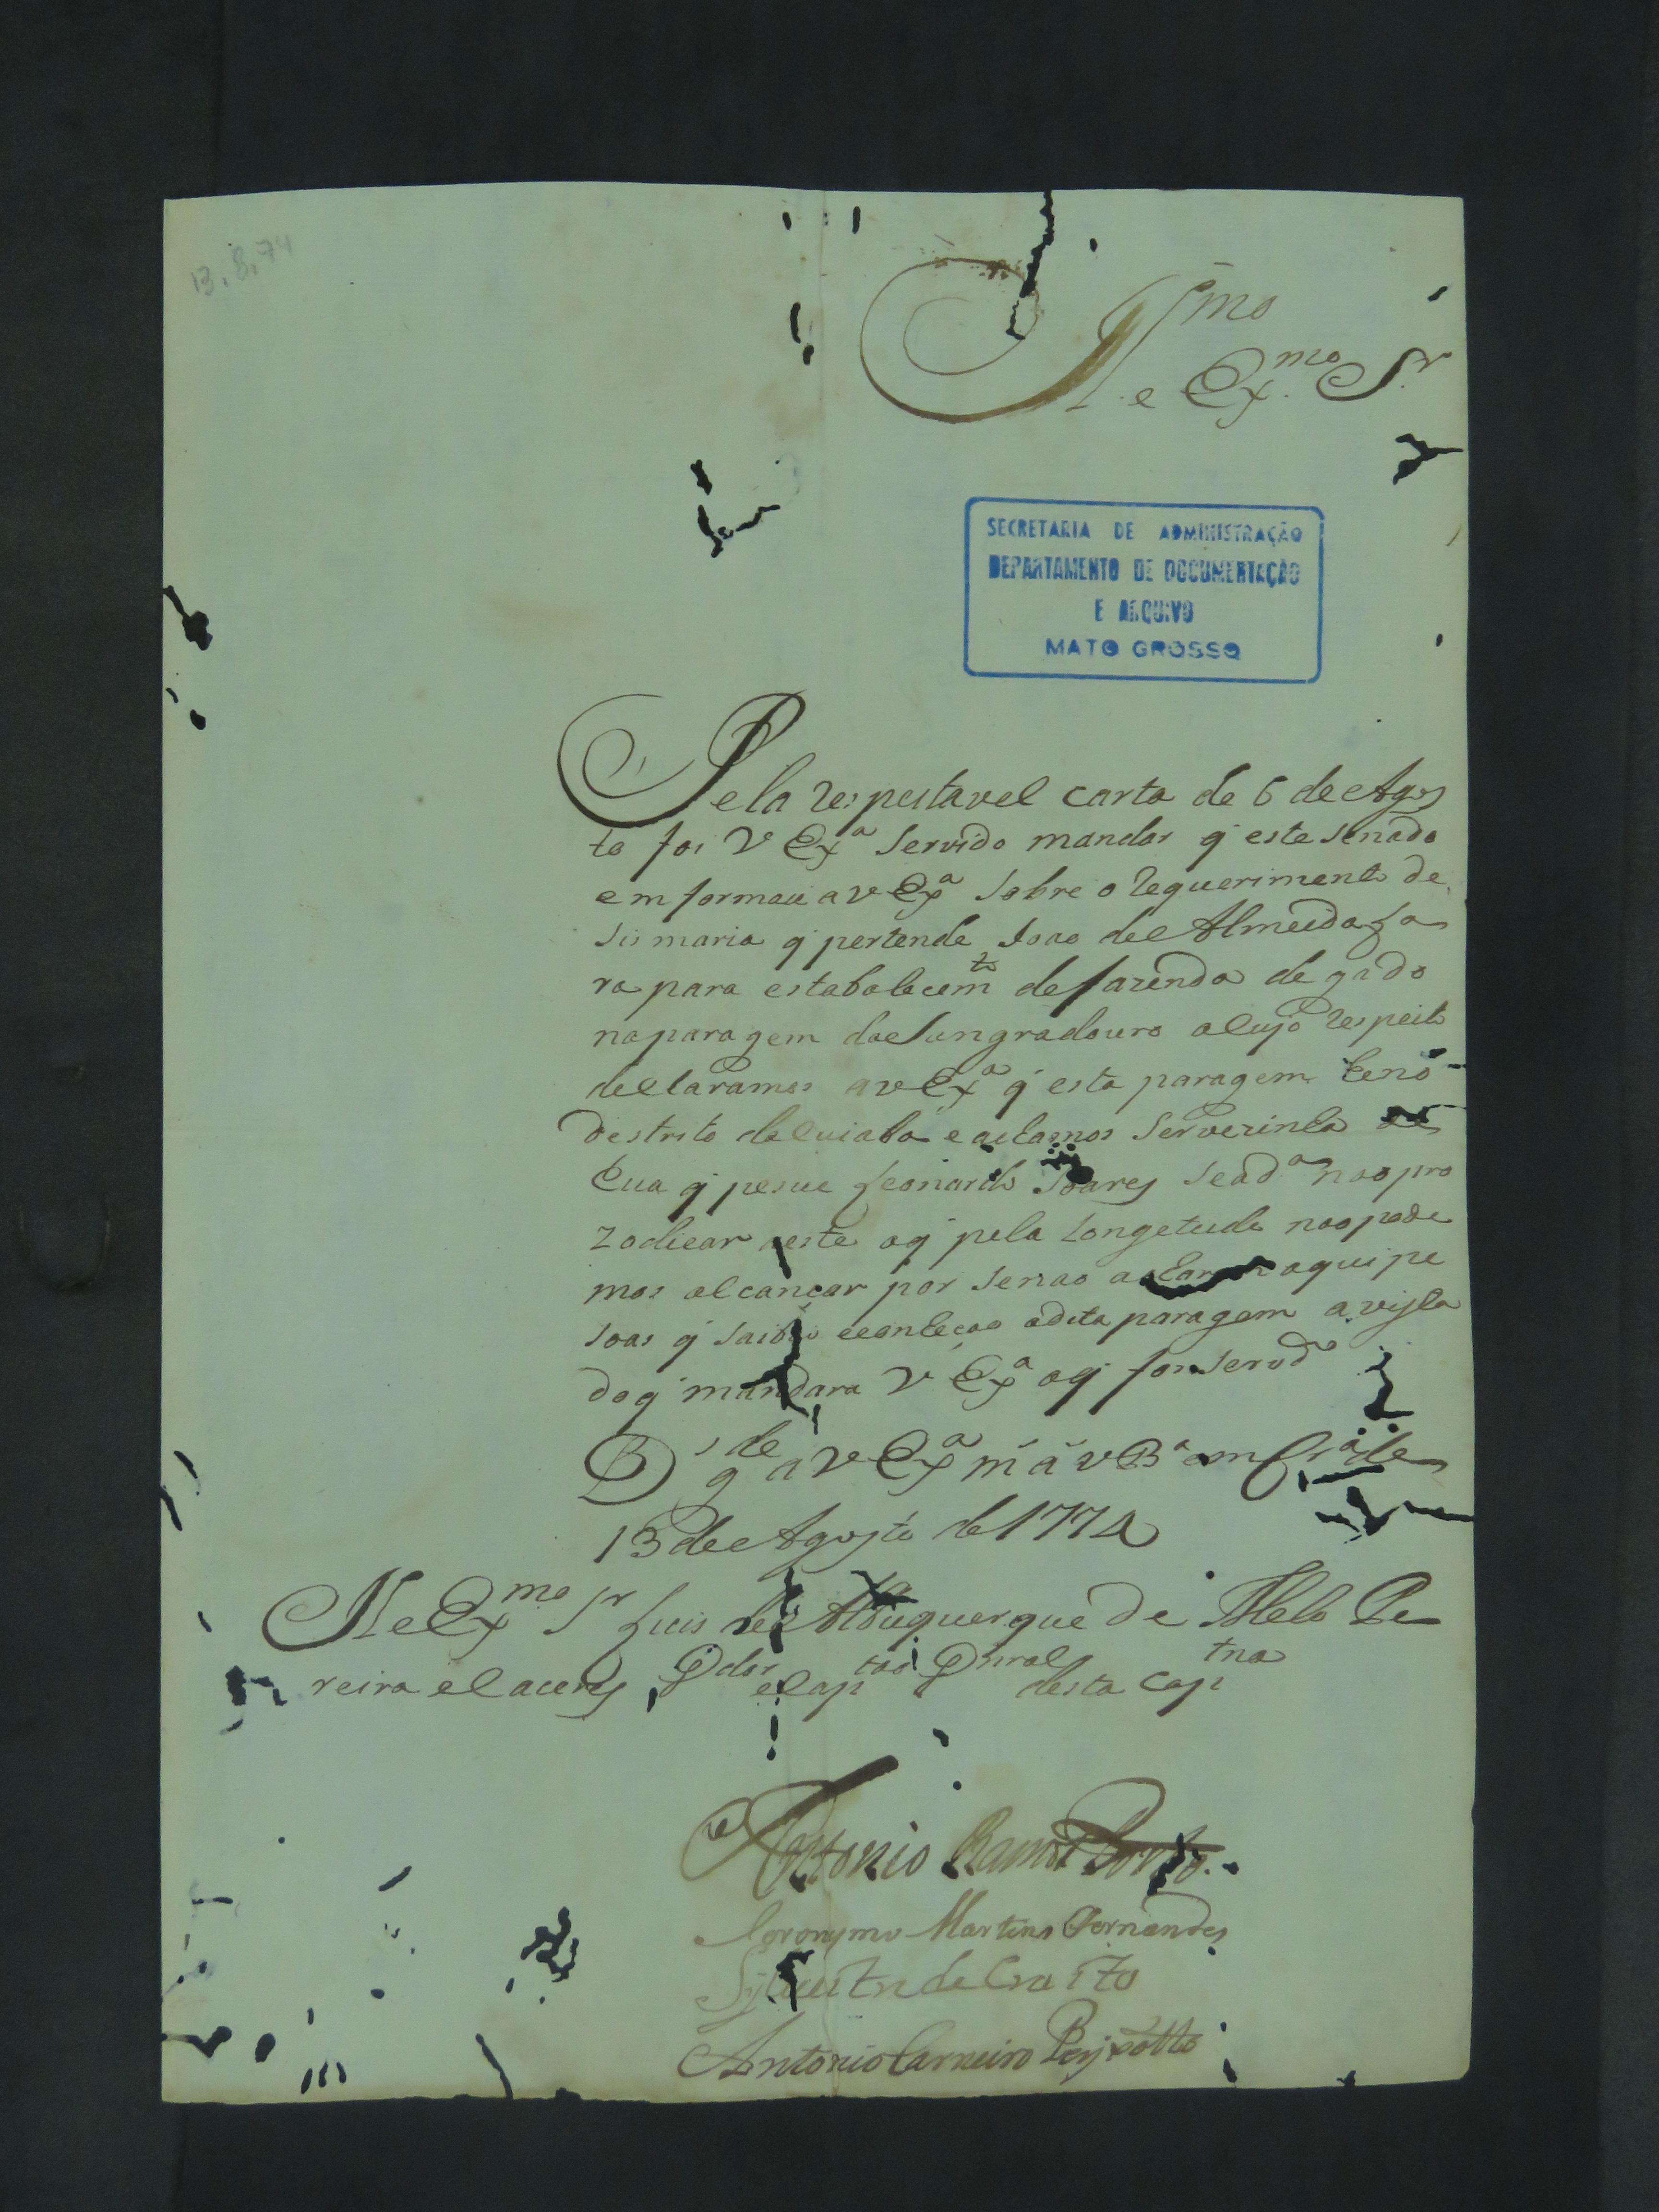 13.8.74
Il.mo
e Ex.mo S.r
SECRETARIA DE ADMINISTRAÇÃO
DEPARTAMENTO DE DOCUMENTAÇÃO
E ARQUIVO
MATO GROSSO
Pela respeitavel carta de 6 de Agos
to foi V Ex.a servido mandar q' este senado
em formace a V Ex.a sobre o requerimento de
sismaria q' pertende Joao de Almeida La
ra para estabalecim.to de fazenda de gado
na paragem do Sangradouro a cujo respeito
declaramos a V Ex.a q' esta paragem he no
destrito do Cuiabá e achamos ser vezinha
hua q' pesue Leonardo Soares se a d.a nao pro
Zodicar a este o q' pela Longetude nao pode
mos alcançar por se nao acharem aqui pe
soas q' saibão e conheção a dita paragem a vista
do q' mandara V Ex.a o q' for servido
D.s g.de a V Ex.a m.a V B.a em Cra de
13 de Agosto de 1774
Il e Ex.mo Sr Luis de Albuquerque de Mello Pe
reira e Caceres G.dor e Cap.tao G.neral desta Cap.tna
Antonio Ramos Porto
Joronymo Martins Fernandes
Antonio Carneiro Peyxotto